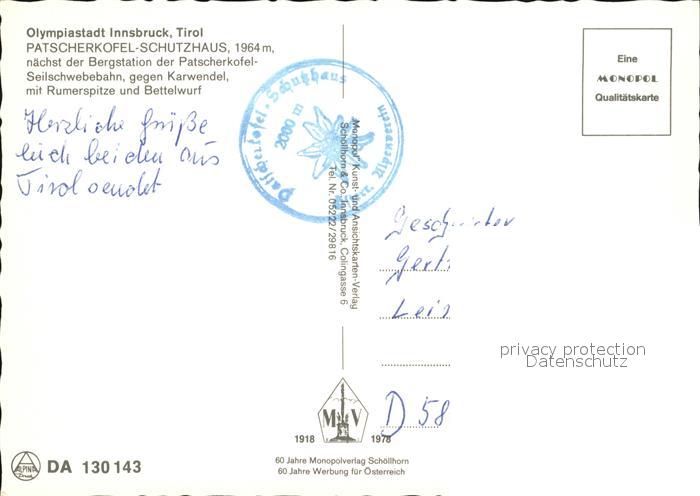 Olympiastadt Innsbruck, Tirol
PATSCHERKOFEL-SCHUTZHAUS, 1964 m,
nächst der Bergstation der Patscherkofel-
Seilschwebebahn, gegen Karwendel,
mit Rumerspitze und Bettelwurf
Herzliche Grüße
euch beiden aus
Tirol sendet
Patscherkofel-Schutzhaus
2000 m
Alpenverein
Monopol" Kunst- und Ansichtskarten-Verlag
Schöllhorn & Co., Innsbruck, Colingasse 6
Tel. Nr. 05222/29816
Eine
MONOPOL
Qualitätskarte
Gert
D 58
privacy protection
Datenschutz
M V
1918 1978
60 Jahre Monopolverlag Schöllhorn
60 Jahre Werbung für Österreich
ALPINA
Druck
DA 130 143